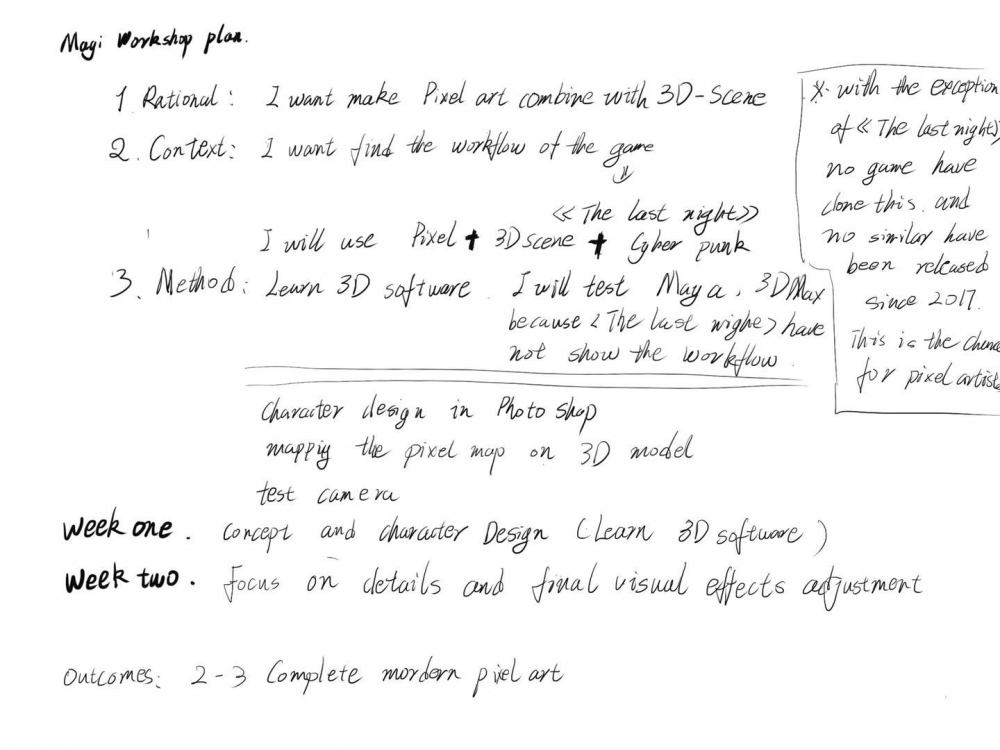 Magi Workshop plan.
1. Rational: I want make Pixel art combine with 3D-Scene
2. Context: I want find the workflow of the game
《The last night》
I will use Pixel + 3D scene + Cyber punk
3. Method: Learn 3D software. I will test Maya, 3DMax
because <The last nighe> have
not show the workflow.
Character design in Photo shop
mappig the pixel map on 3D model
test camera
week one. Concept and character Design (Learn 3D software)
week two. Focus on details and final visual effects adjustment
Outcomes: 2-3 Complete mordern pixel art
※ with the exception
of 《The last night》
no game have
done this. and
no similar have
been released
since 2017.
This is the chance
for pixel artists